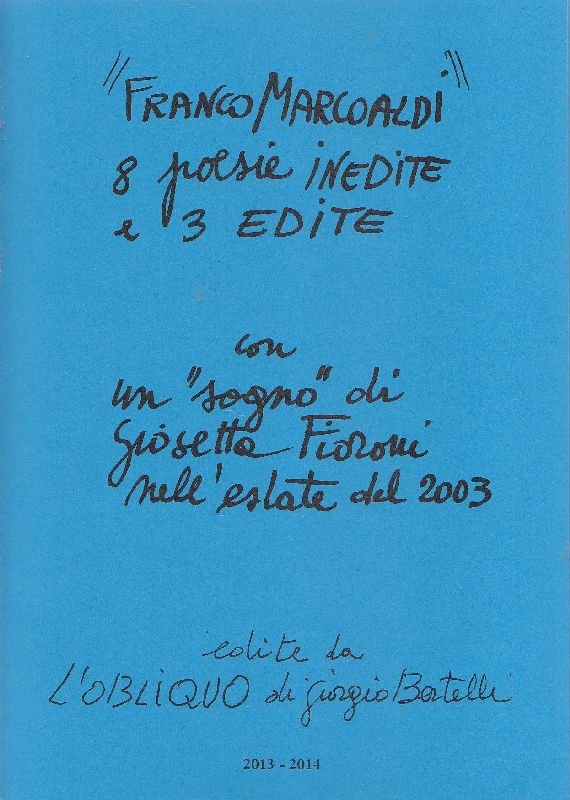 "FRANCO MARCOALDI"
8 poesie INEDITE
e 3 EDITE
con
un "sogno" di
Giosetta Fioroni
nell'estate del 2003
edite da
L'OBLIQUO di Giorgio Bertelli
2013 - 2014